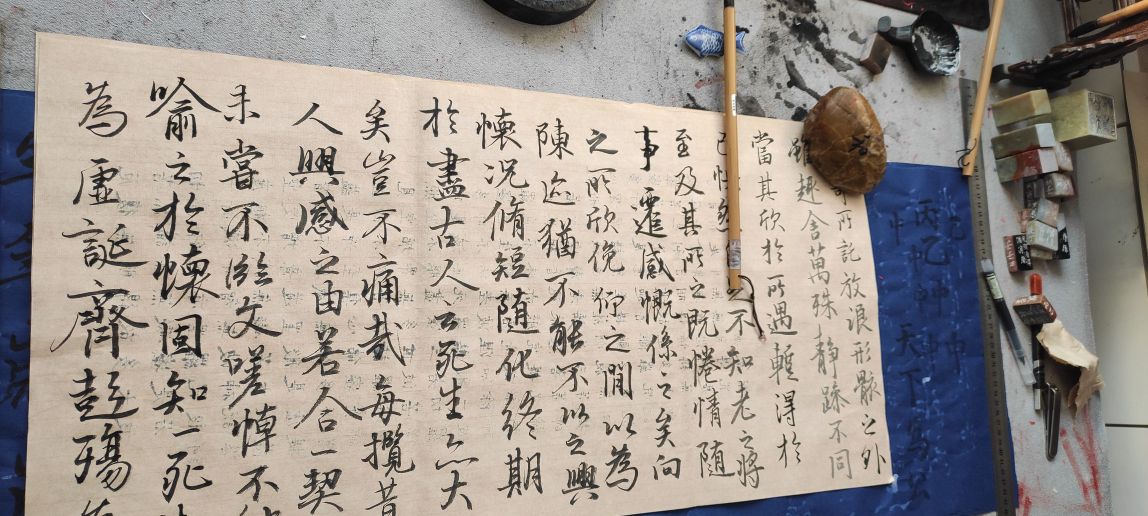 所託放浪形骸之外
雖趣舍萬殊靜躁不同
當其欣於所遇暫得於
己快 不知老之將
至及其所之既惓情隨
事遷感慨係之矣向
之所欣俛仰之閒以為
陳迹猶不能不以之興
懷況脩短隨化終期
於盡古人云死生亦大
矣豈不痛哉每攬昔
人興感之由若合一契
未嘗不臨文嗟悼不
喻之於懷固知一死
為虛誕齊彭殤